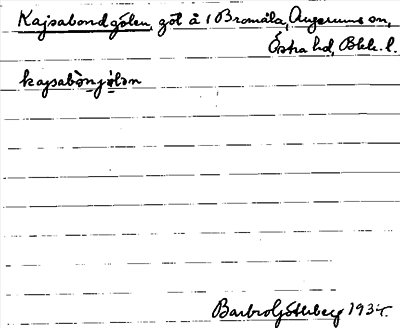 Kajsabondgölen, göl å 1 Bromåla, Augerums sn,
Östra hd, Blek. l.
kajsabònjö̀lən
Barbro Götlberg 1934.